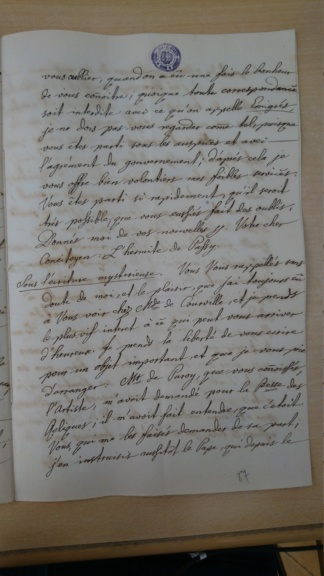 vous oublier, quand on a eu une fois le bonheur
de vous connoitre; quoique toute correspondance
soit interdite avec ce qu'on appelle Emigrés,
je ne dois pas vous regarder comme tel, puisque
vous etes parti sous les auspices et avec
l'agrement du gouvernement; d'après cela je
vous offre bien volontiers mes foibles services.
Vous etes parti si rapidement, qu'il seroit
très possible, que vous eussiés fait des oublis.
Donnés moi de vos nouvelles Votre cher
Concitoyen. L'hermite de Passy.
Sous l'ecriture mysterieuse. Vous Vous rappellés sans
doute de moi, et le plaisir, que j'ai toujours eu
à Vous voir chez Mde de Courville, et je prends
le plus vif interet à ce qui peut vous arriver
d'heureux. Je prends la liberté de vous ecrire
pour un objet important, et que je vous prie
d'arranger. Mr de Paroy, que vous connoissés,
l'Artiste, m'avoit demandé pour la des
Reliques; il m'avoit fait entendre que c'etoit
Vous, qui me les faisés demander de sa part,
j'en instruisis aussitot le Pape qui depuis le
57